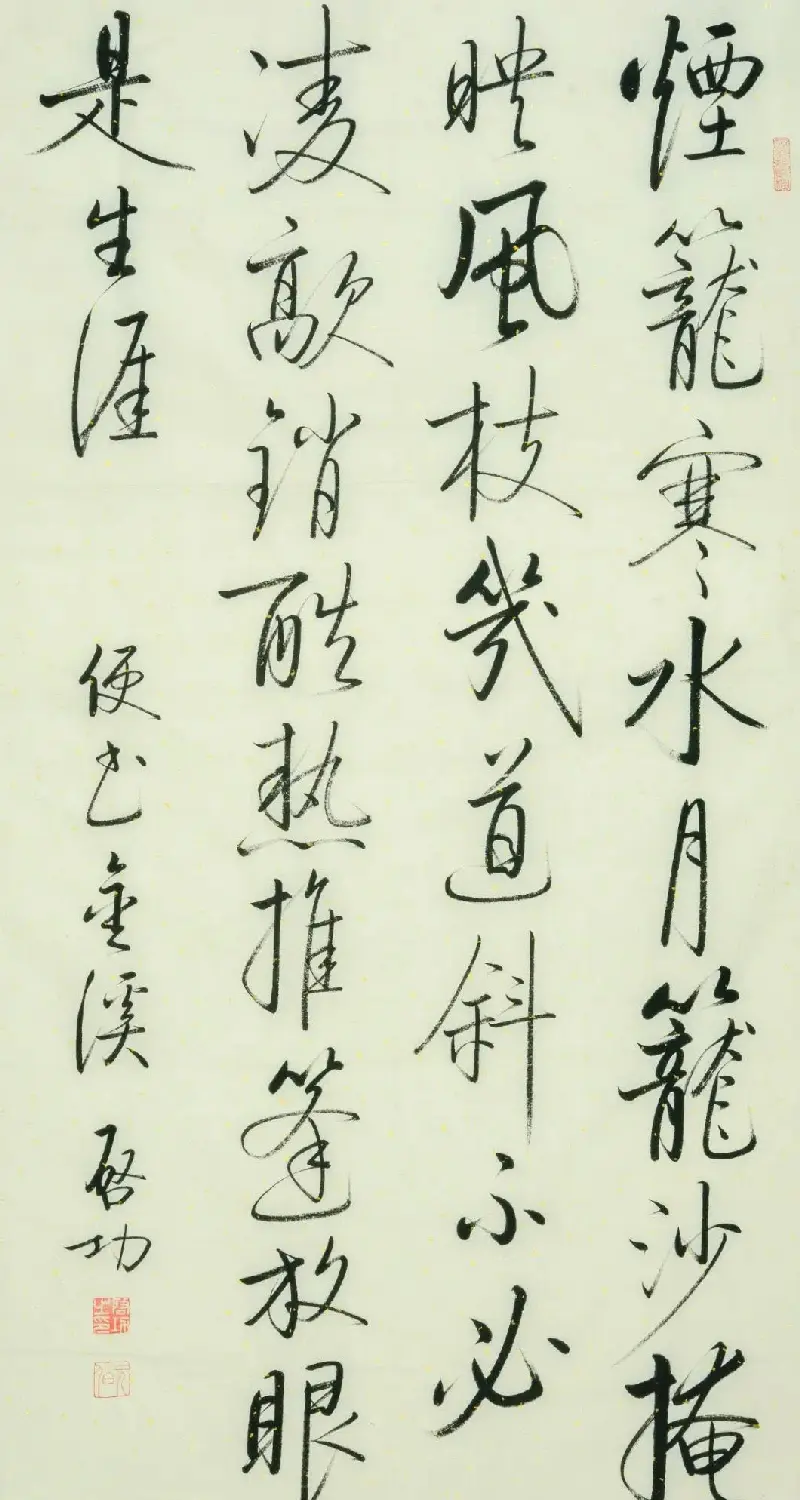 煙籠寒水月籠沙掩
映風枝幾道斜不必
凌歊銷酷熱推篷放眼
是生涯
便书金溪 启功